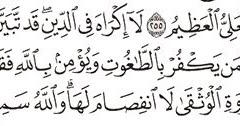 لِىُّ ٱلْعَظِيمُ ﴿٢٥٥﴾ لَآ إِكْرَاهَ فِى ٱلدِّينِ ۖ قَد تَّبَيَّنَ
مَن يَكْفُرْ بِٱلطَّـٰغُوتِ وَيُؤْمِنۢ بِٱللَّهِ فَقَ
وَةِ ٱلْوُثْقَىٰ لَا ٱنفِصَامَ لَهَا ۗ وَٱللَّهُ سَمِ